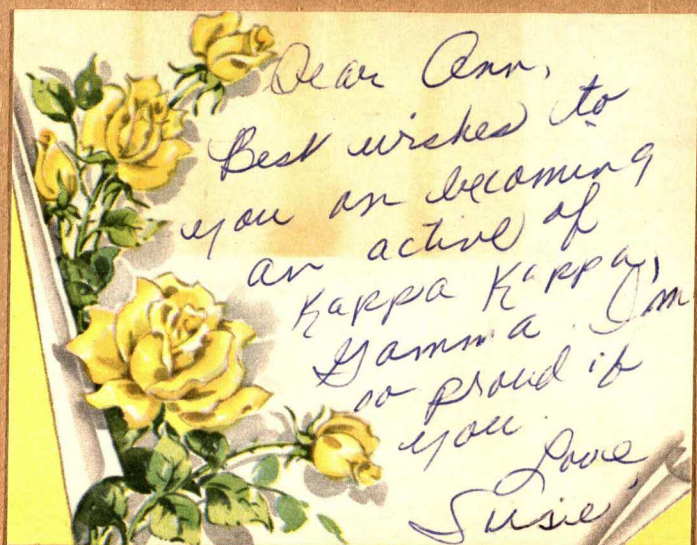 Dear Ann,
Best wishes to
you on becoming
an active of
Kappa Kappa,
Gamma. I'm
so proud of
you.
Love
Susie